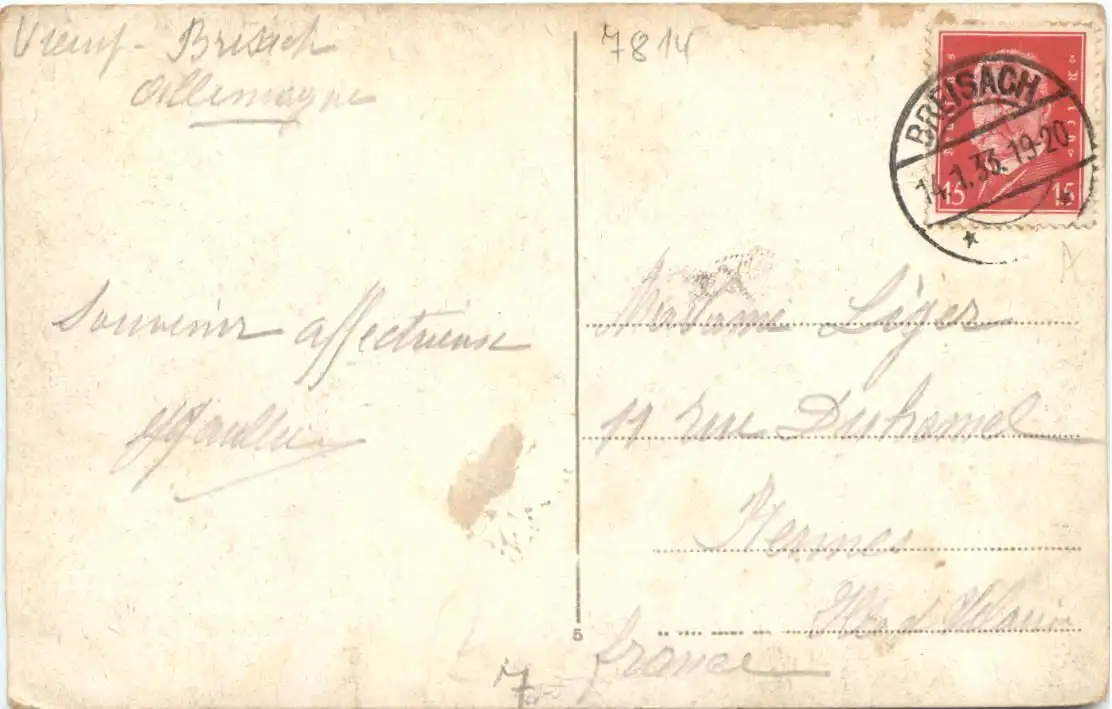 Vieuf - Brisach
Allemagne
Souvenir affectueux
7814
BREISACH
14.1.33.19-20
15 15
Madame Léger
11 rue Duhamel
Rennes
Ille et Vilaine
france
5
7